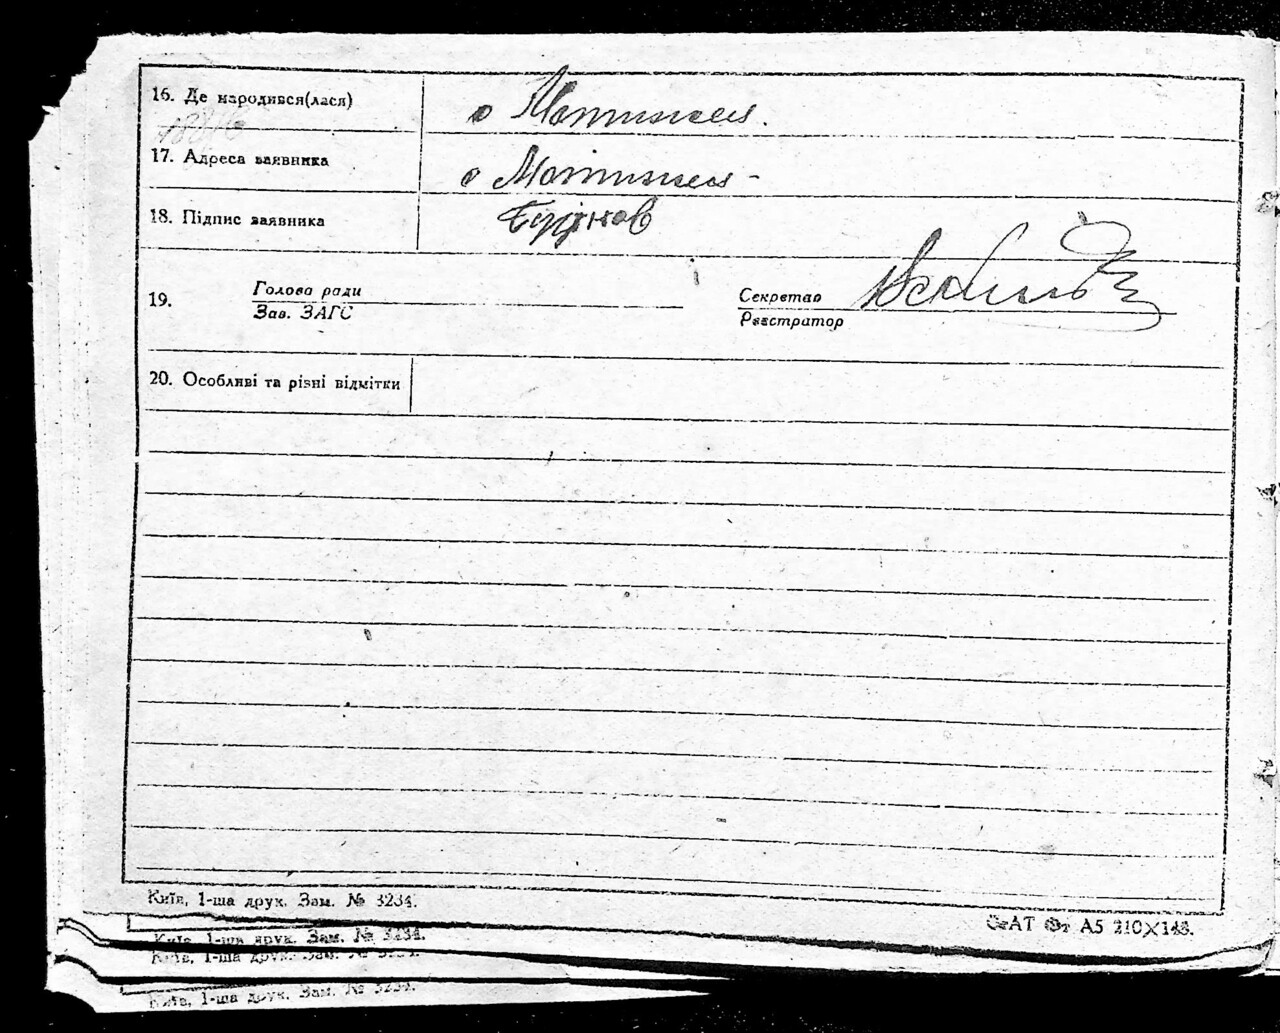 16. Де народився(лася)
с Мотижея.
17. Адреса заявника
с Мотижея -
18. Підпис заявника
19.
Голова ради
Зав. ЗАГС
Секретар
Реєстратор
20. Особливі та різні відмітки
Київ, 1-ша друк. Зам. № 3234.
СтАТ Фт А5 210×148.
Київ, 1-ша друк. Зам. № 3234.
Київ, 1-ша друк. Зам. № 3234.
Київ, 1-ша друк. Зам. № 3234.